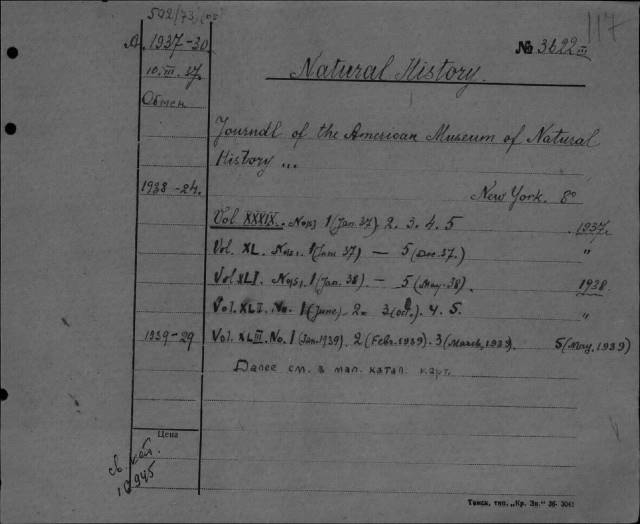 592/73)(05
117
A. 1937-30
№ 3622 III
10. III. 37.
Natural History.
Обмен
Journal of the American Museum of Natural
History ...
1938-24.
New York. 8°
Vol XXXIX. No(s) 1 (Jan. 37) 2. 3. 4. 5 1937.
Vol. XL. No(s). 1 (June 37) — 5 (Dec. 37.) "
Vol XLI. No(s). 1 (Jan. 38) — 5 (May. 38). 1938
Vol. XLII. No. 1 (June). 2. 3 (Oct.). 4. 5. "
1939-29 Vol. XLIII. No. 1 (Jan. 1939). 2 (Febr. 1939). 3 (March, 1939). 5 (May, 1939)
Далее см. в мал. катал. карт.
Цена
св. кат.
1945
Томск, тип. „Кр. Зн." 36-